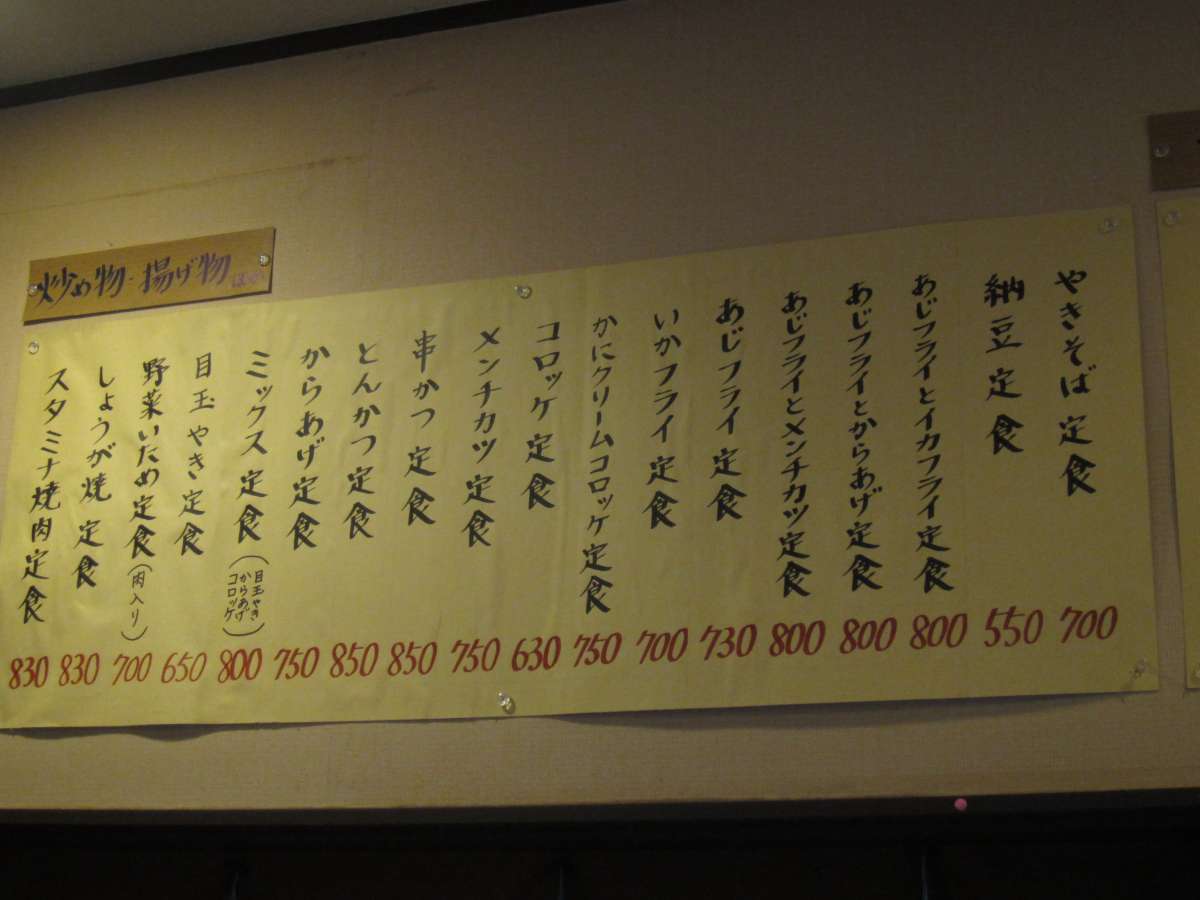 炒め物・揚げ物 ほか
やきそば定食 700
納豆定食 550
あじフライとイカフライ定食 800
あじフライとからあげ定食 800
あじフライとメンチカツ定食 800
あじフライ定食 730
いかフライ定食 700
かにクリームコロッケ定食 750
コロッケ定食 630
メンチカツ定食 750
串かつ定食 850
とんかつ定食 850
からあげ定食 750
ミックス定食(目玉やき からあげ コロッケ) 800
目玉やき定食 650
野菜いため定食(肉入り) 700
しょうが焼定食 830
スタミナ焼肉定食 830